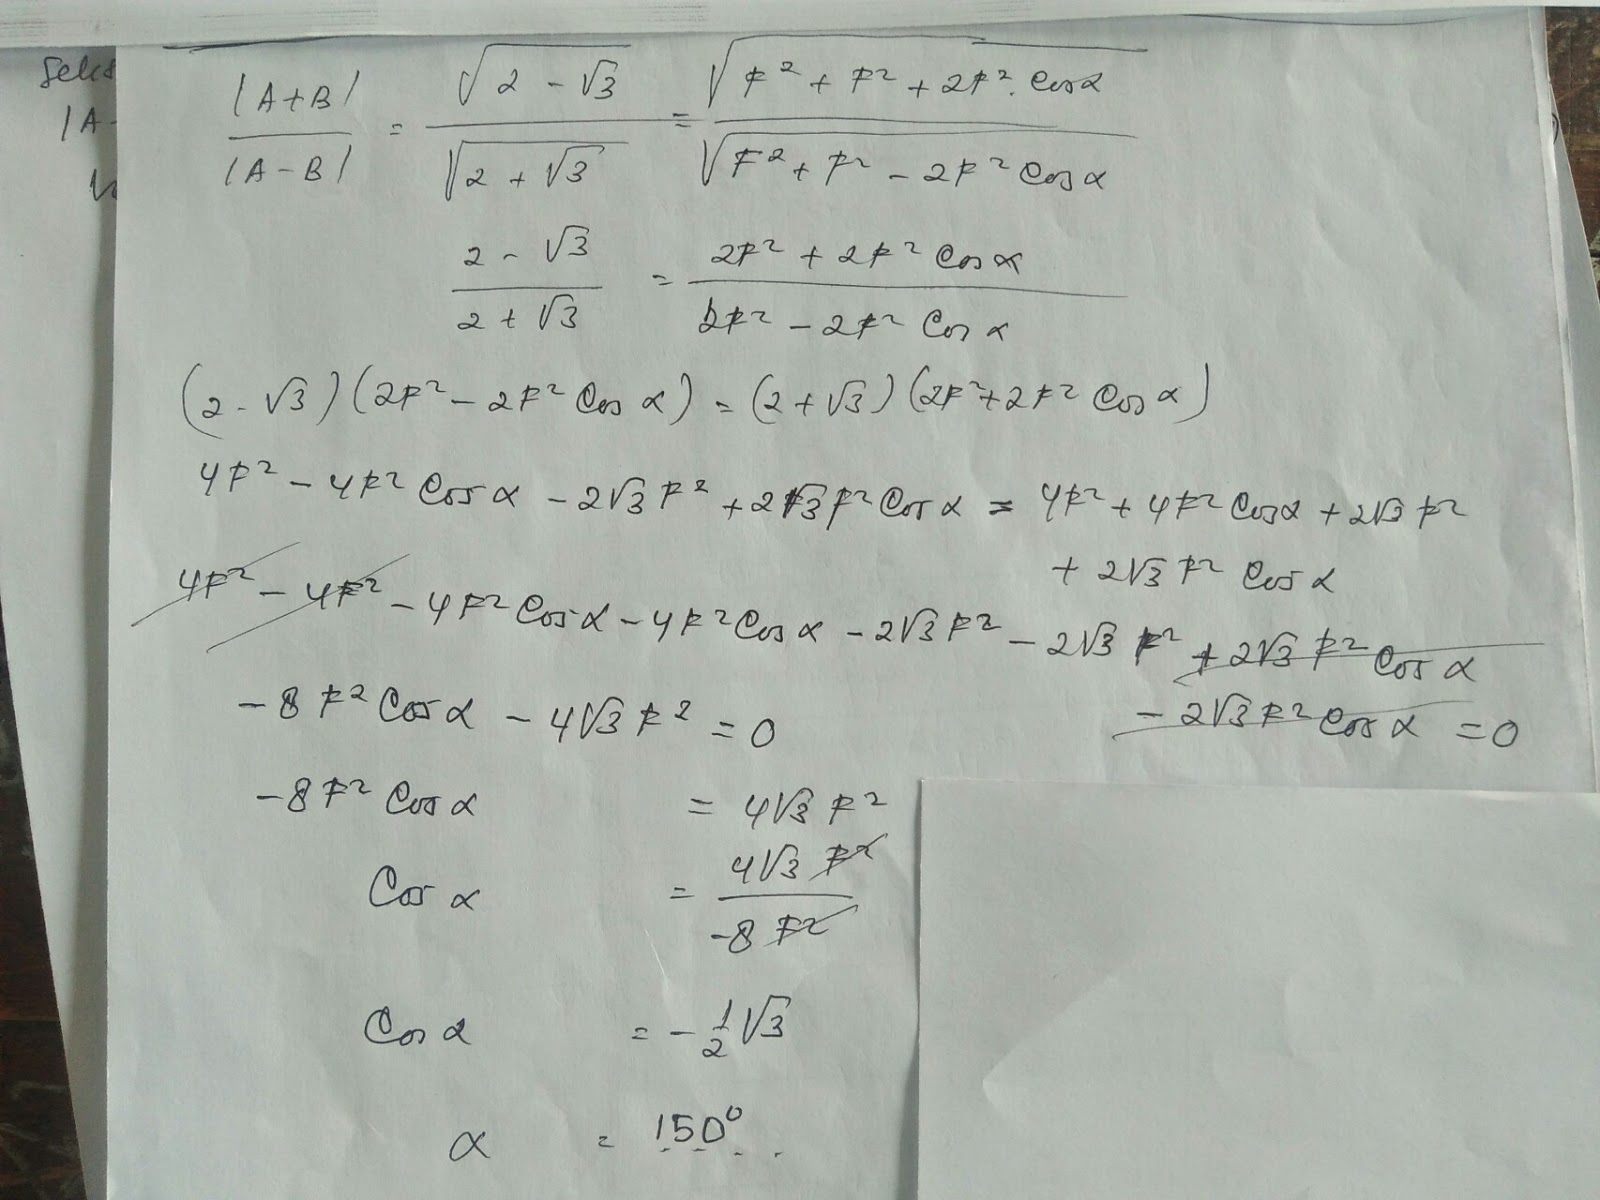 Seks
|A-
|A+B| / |A-B| = √(2 - √3) / √(2 + √3) = √(F² + F² + 2F². Cos α) / √(F² + F² - 2F² Cos α)
(2 - √3) / (2 + √3) = (2F² + 2F² Cos α) / (2F² - 2F² Cos α)
(2 - √3)(2F² - 2F² Cos α) = (2 + √3)(2F² + 2F² Cos α)
4F² - 4F² Cos α - 2√3 F² + 2√3 F² Cos α = 4F² + 4F² Cos α + 2√3 F²
+ 2√3 F² Cos α
4F² - 4F² - 4F² Cos α - 4F² Cos α - 2√3 F² - 2√3 F² + 2√3 F² Cos α
- 2√3 F² Cos α = 0
-8F² Cos α - 4√3 F² = 0
-8F² Cos α = 4√3 F²
Cos α = 4√3 F² / -8 F²
Cos α = -1/2 √3
α = 150°